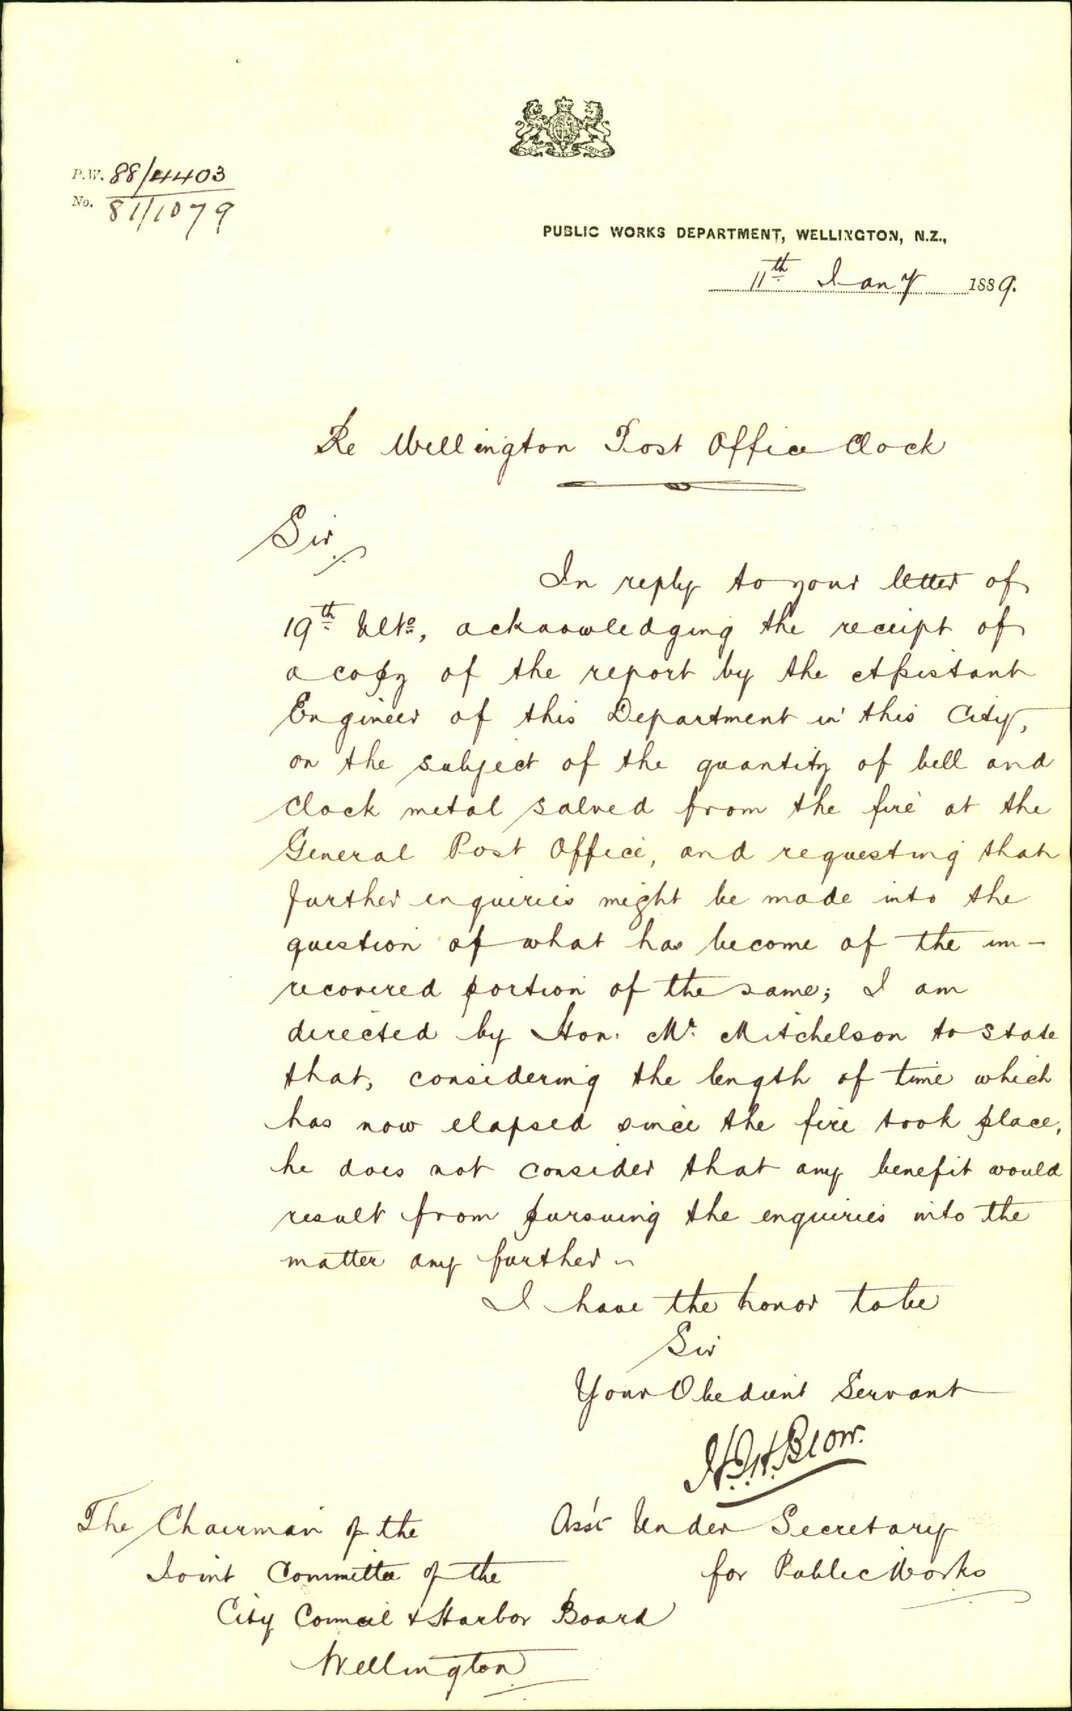 P.W. 88/4403
No. 81/1079
PUBLIC WORKS DEPARTMENT, WELLINGTON, N.Z.,
11th Jany 1889.
Re Wellington Post Office Clock
Sir,
In reply to your letter of
19th Ulto, acknowledging the receipt of
a copy of the report by the Assistant
Engineer of this Department in this City,
on the subject of the quantity of bell and
clock metal salved from the fire at the
General Post Office, and requesting that
further enquiries might be made into the
question of what has become of the un-
recovered portion of the same; I am
directed by Hon. Mr. Mitchelson to state
that, considering the length of time which
has now elapsed since the fire took place,
he does not consider that any benefit would
result from pursuing the enquiries into the
matter any further ~
I have the honor to be
Sir
Your Obedient Servant
H.J.H. Blow.
Ass't Under Secretary
for Public Works
The Chairman of the
Joint Committee of the
City Council & Harbor Board
Wellington